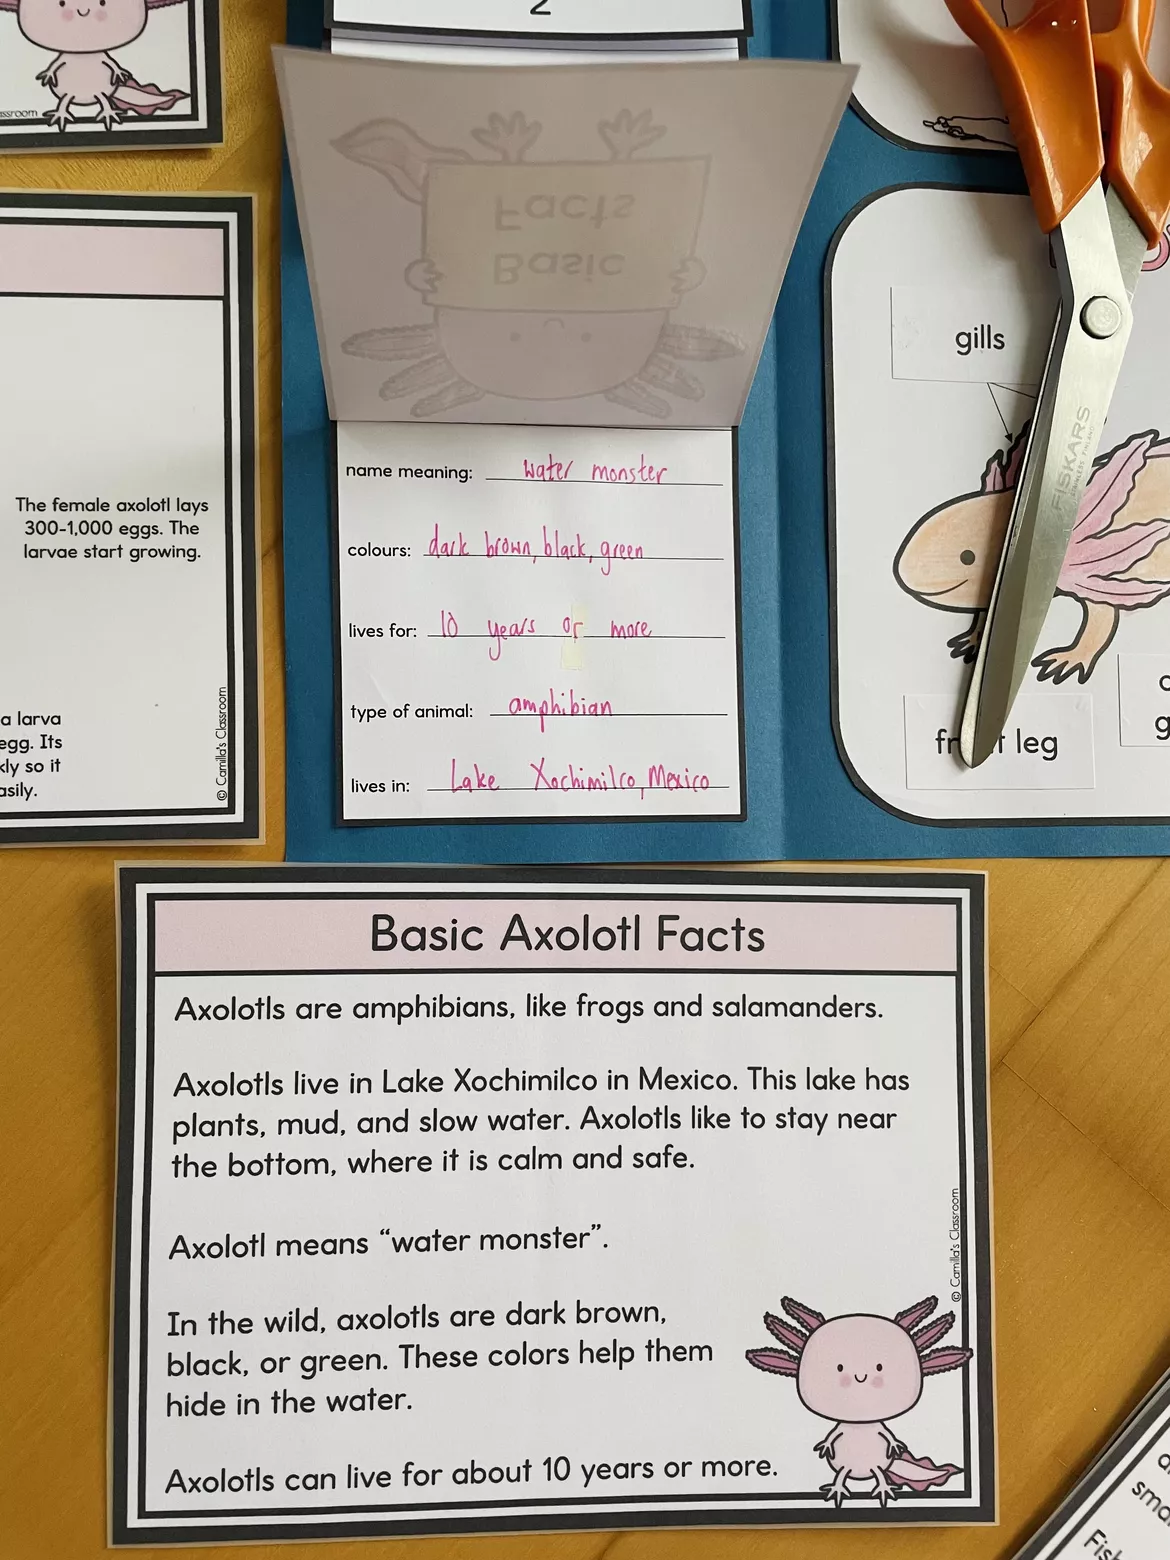 2
ssroom
The female axolotl lays
300-1,000 eggs. The
larvae start growing.
a larva
egg. Its
kly so it
asily.
© Camilla's Classroom
Basic
Facts
name meaning: water monster
colours: dark brown, black, green
lives for: 10 years or more
type of animal: amphibian
lives in: Lake Xochimilco, Mexico
gills
FISKARS
leg
Basic Axolotl Facts
Axolotls are amphibians, like frogs and salamanders.
Axolotls live in Lake Xochimilco in Mexico. This lake has
plants, mud, and slow water. Axolotls like to stay near
the bottom, where it is calm and safe.
Axolotl means “water monster”.
In the wild, axolotls are dark brown,
black, or green. These colors help them
hide in the water.
Axolotls can live for about 10 years or more.
© Camilla's Classroom
sma
Fis